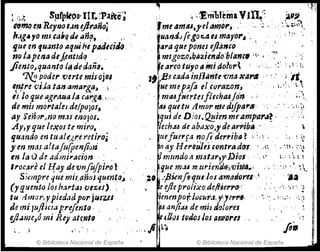 Suspiro III. Parte
como en Reyno tan estraño
haga yo mi cabo de año,
que en quanto aqui he padecido
no la pena de sentido
siento, quanto la de daño.
No poder verte mis ojos
entre vida tan amarga,
es lo que agraua la carga
de mis mortales despojos,
ay Señor, no mas enojos.
Ay, y que lexos te miro,
quando en tu alegre retiro;
y en mas alta suspension
en la O de admiracion
trocaré el Hay de vn suspiro!
Siempre que miз, años quento,
(y quento los hartas vezes)
tu Amor, y piedad por juezes
de mi justicia presento
estame, ó mi Rey atento
Emblema VIII.
me amas, y el amor,
quando sigoza es mayor,
para que pones estanco
mi gozo, haziendo blanco
de arco tuyo a mi dolor?
Es cada instante vna xara
que me passa el coraçon,
mas fuertes flechas son
las que tu Amor me dispara
aqui de Dios, Quien me ampara?
flechas de abaxo, y de arriba
que fuerça no se derriba?
no ay Hercules contra dos
mundo a matar, y Dios
que mas muriendo, viua.
Bien se que los amadores
este prolixo destierro
tienen por locura, y yerro
las ansias de mis dolores
ellos todos los amores
© Biblioteca Nacional de España
© Biblioteca Nacional de España